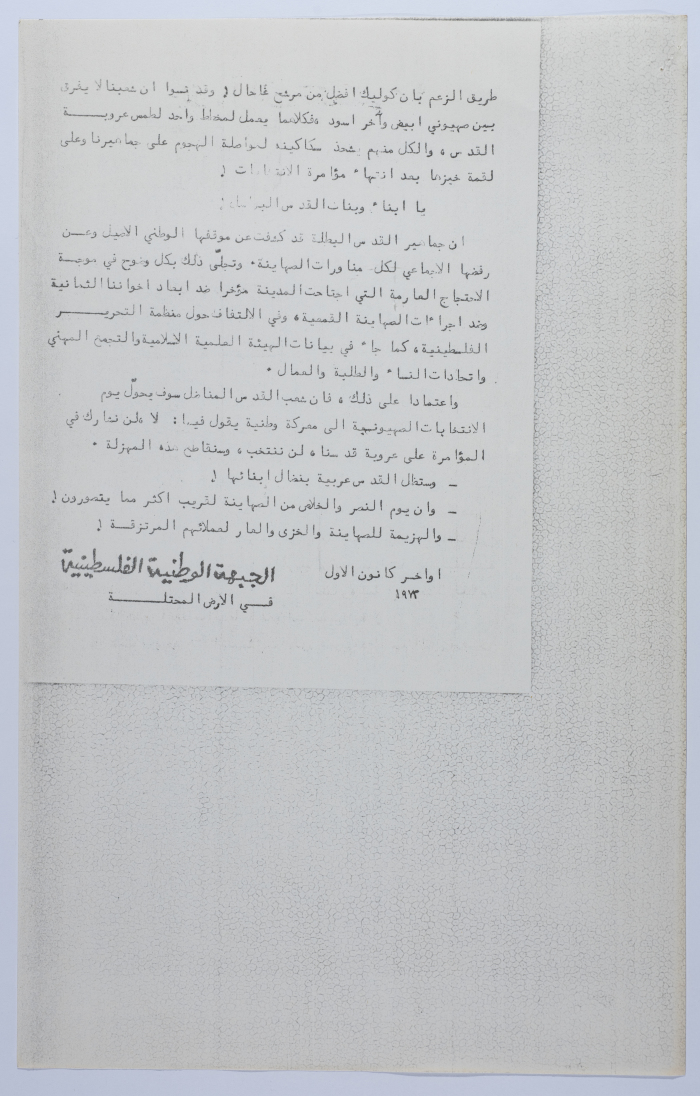 طريق الزعم بان كوليك افضل من مرشح جاحال! وقد نسوا ان شعبنا لا يفرق
بين صهيوني ابيض وآخر اسود، فكلاهما يعمل لمخطط واحد لطمس عروبـــــة
القدس، والكل منهم يشحذ سكاكينه لمواصلة الهجوم على جماهيرنا وعلى
لقمة خبزها بعد انتهاء مؤامرة الانتخابات!
يا ابناء وبنات القدس البواسل!
ان جماهير القدس البطلة قد كشفت عن موقفها الوطني الاصيل وعـــن
رفضها الاجماعي لكل مناورات الصهاينة. وتجلّى ذلك بكل وضوح في موجـــة
الاحتجاج العارمة التي اجتاحت المدينة مؤخرا ضد ابعاد اخواننا الثمانية
وضد اجراءات الصهاينة القمعية، وفي الالتفاف حول منظمة التحريـــــر
الفلسطينية، كما جاء في بيانات الهيئة العلمية الاسلامية والتجمع المهني
واتحادات النساء والطلبة والعمال.
واعتمادا على ذلك، فان شعب القدس المناضل سوف يحوّل يوم
الانتخابات الصهيونية الى معركة وطنية يقول فيها: لا ولن نشارك في
المؤامرة على عروبة قدسنا، لن ننتخب، وسنقاطع هذه المهزلة.
ـ وستظل القدس عربية بنضال ابنائها!
ـ وان يوم النصر والخلاص من الصهاينة لقريب اكثر مما يتصورون!
ـ والهزيمة للصهاينة والخزى والعار لعملائهم المرتزقـــة!
اواخر كانون الاول
١٩٧٣
الجبهة الوطنية الفلسطينية
فـــي الارض المحتلـــــة